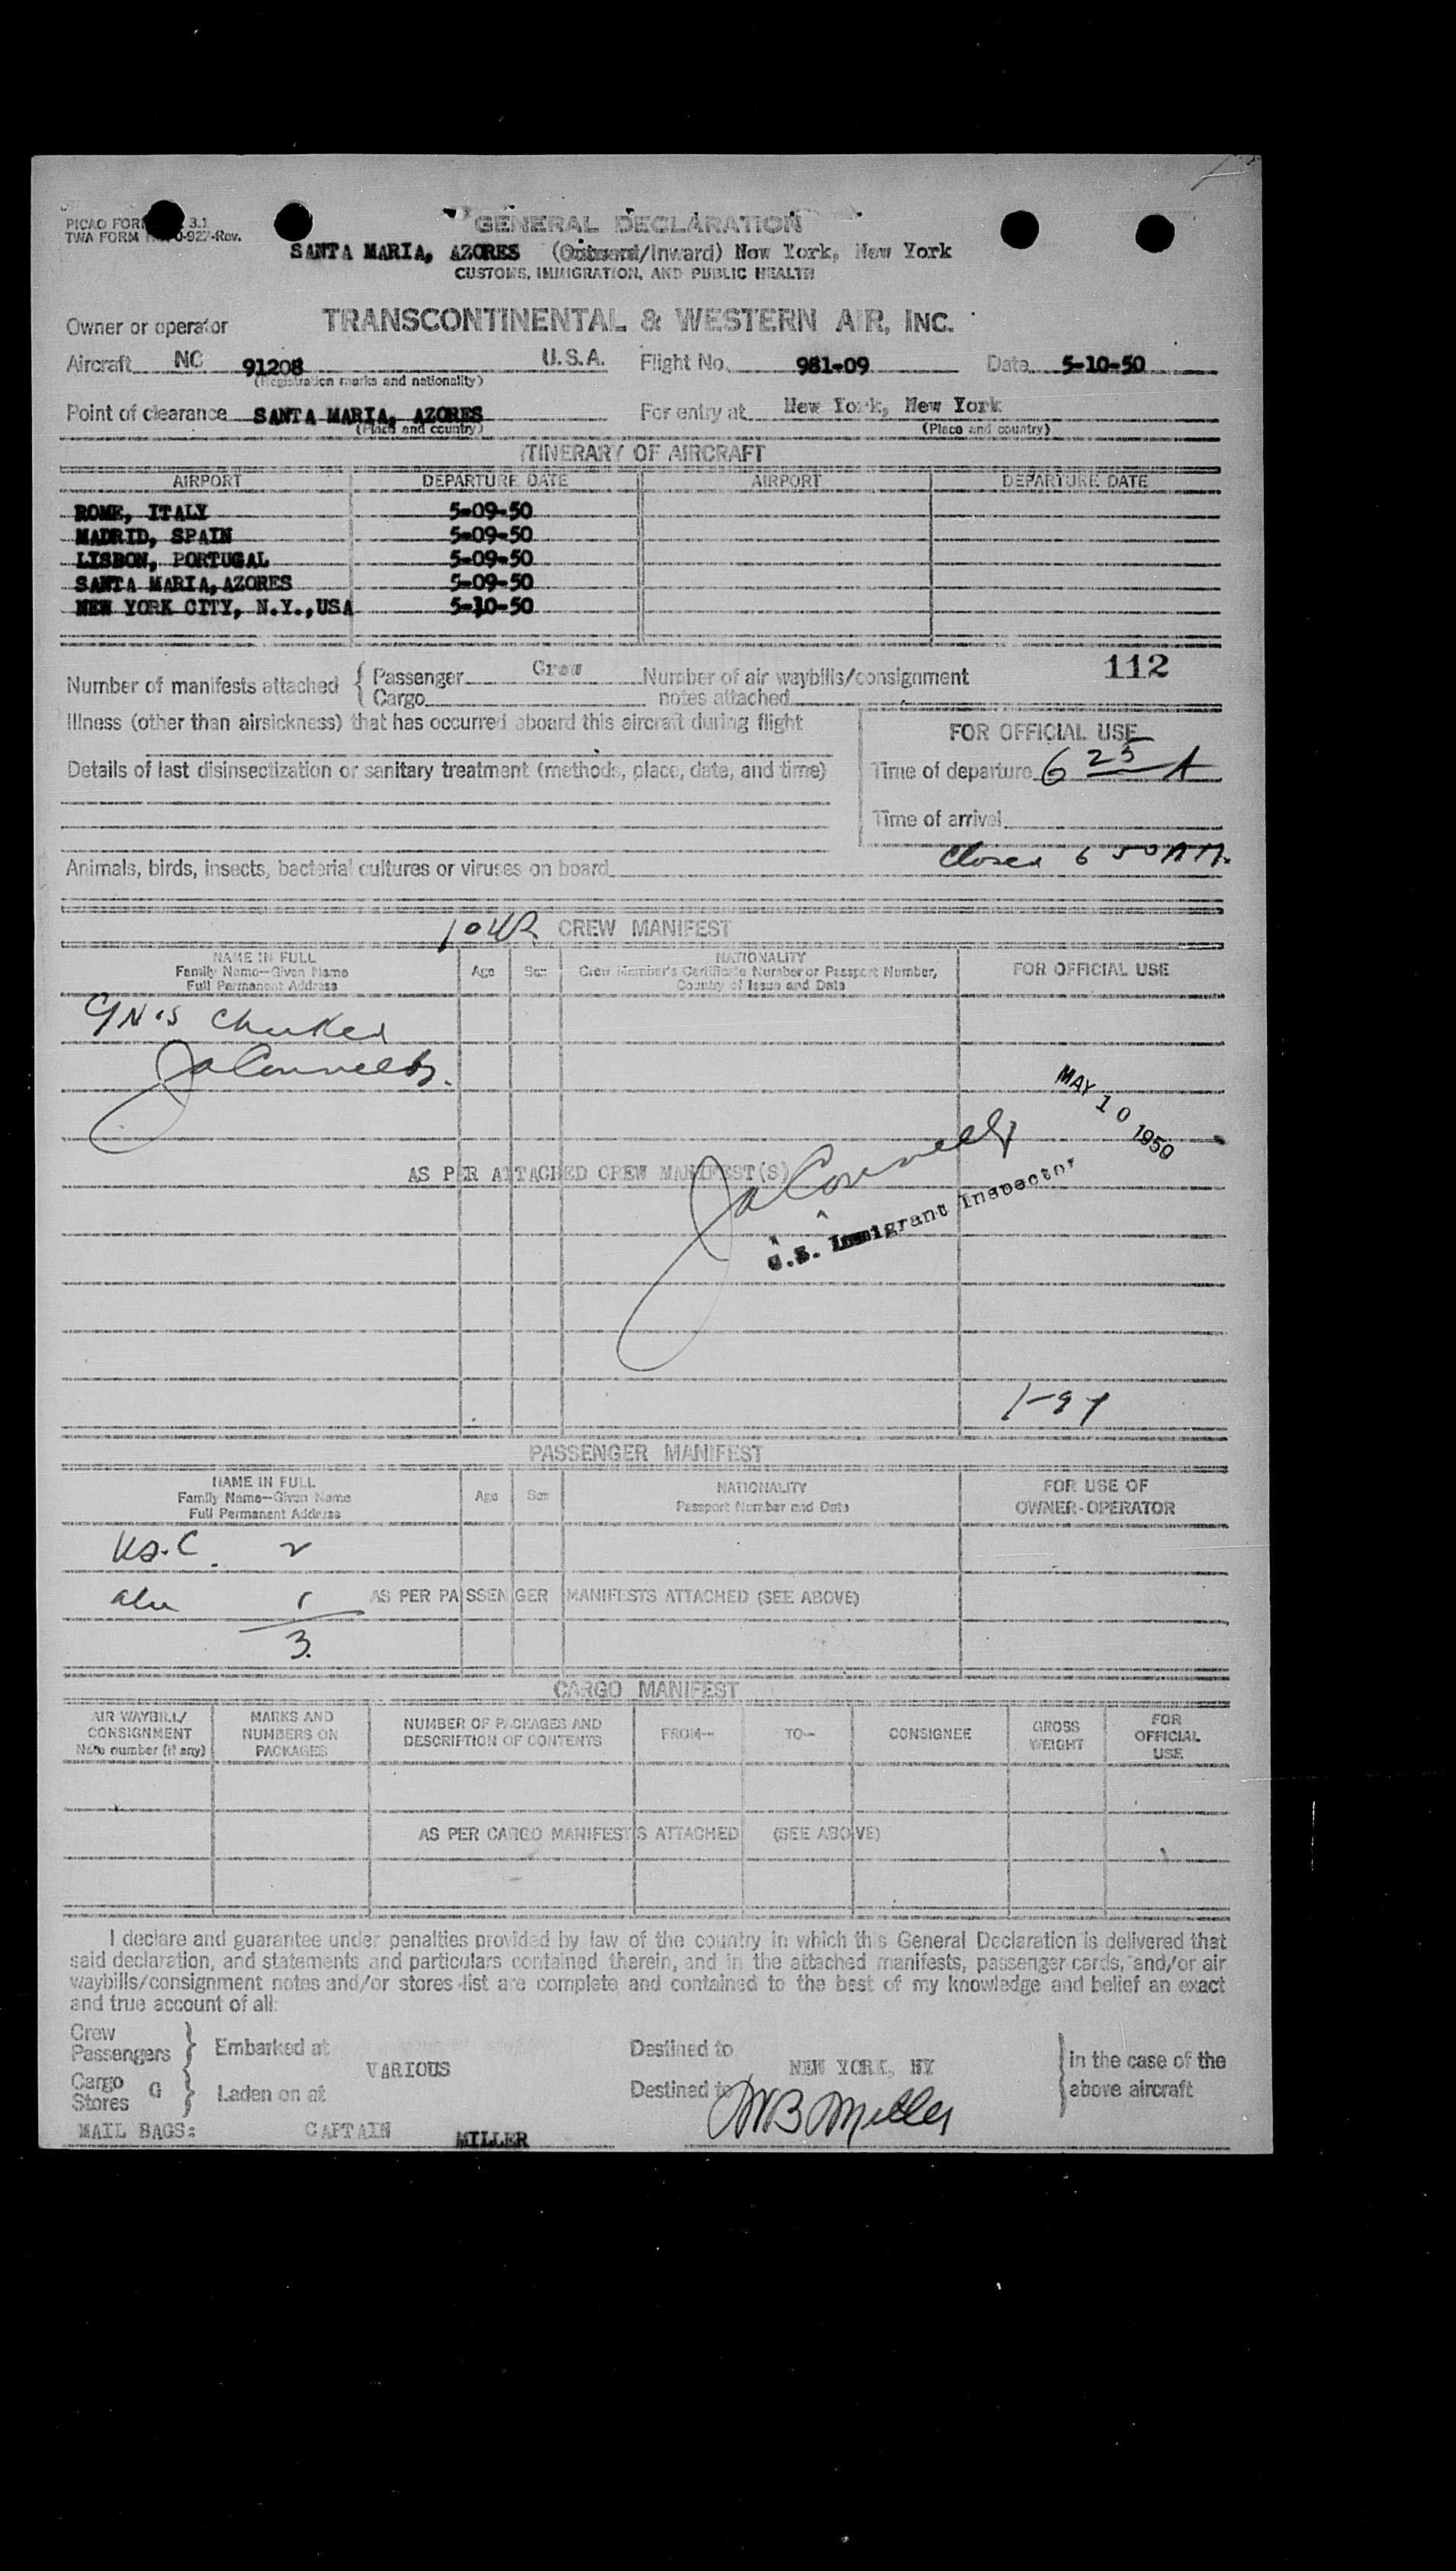 GENERAL DECLARATION
PICAO FORM 3.1
TWA FORM 0-927-Rev.
SANTA MARIA, AZORES (Outward/Inward) New York, New York
CUSTOMS, IMMIGRATION, AND PUBLIC HEALTH
Owner or operator TRANSCONTINENTAL & WESTERN AIR, INC.
Aircraft NC 91208 U.S.A. Flight No. 981-09 Date 5-10-50
(Registration marks and nationality)
Point of clearance SANTA MARIA, AZORES For entry at New York, New York
(Place and country) (Place and country)
ITINERARY OF AIRCRAFT
AIRPORT DEPARTURE DATE AIRPORT DEPARTURE DATE
ROME, ITALY 5-09-50
MADRID, SPAIN 5-09-50
LISBON, PORTUGAL 5-09-50
SANTA MARIA, AZORES 5-09-50
NEW YORK CITY, N.Y., USA 5-10-50
112
Number of manifests attached { Passenger Crew Number of air waybills/consignment
Cargo notes attached
Illness (other than airsickness) that has occurred aboard this aircraft during flight
FOR OFFICIAL USE
Details of last disinsectization or sanitary treatment (methods, place, date, and time)
Time of departure 6 25 A
Time of arrival
Closed 6 50 AM.
Animals, birds, insects, bacterial cultures or viruses on board
CREW MANIFEST
NAME IN FULL
Family Name—Given Name
Full Permanent Address
Age Sex
NATIONALITY
Crew Member's Certificate Number or Passport Number,
Country of Issue and Date
FOR OFFICIAL USE
Checked
JaConnelly.
MAY 10 1950
AS PER ATTACHED CREW MANIFEST(S)
JaConnelly
U.S. Immigrant Inspector
PASSENGER MANIFEST
NAME IN FULL
Family Name—Given Name
Full Permanent Address
Age Sex
NATIONALITY
Passport Number and Date
FOR USE OF
OWNER-OPERATOR
US.C. 2
alien 1
AS PER PASSENGER MANIFESTS ATTACHED (SEE ABOVE)
3.
CARGO MANIFEST
AIR WAYBILL/
CONSIGNMENT
Note number (if any)
MARKS AND
NUMBERS ON
PACKAGES
NUMBER OF PACKAGES AND
DESCRIPTION OF CONTENTS
FROM— TO— CONSIGNEE
GROSS
WEIGHT
FOR
OFFICIAL
USE
AS PER CARGO MANIFESTS ATTACHED (SEE ABOVE)
I declare and guarantee under penalties provided by law of the country in which this General Declaration is delivered that
said declaration, and statements and particulars contained therein, and in the attached manifests, passenger cards, and/or air
waybills/consignment notes and/or stores list are complete and contained to the best of my knowledge and belief an exact
and true account of all:
Crew
Passengers } Embarked at Destined to
VARIOUS NEW YORK, NY
} in the case of the
above aircraft
Cargo
Stores G } Laden on at Destined to
MAIL BAGS: CAPTAIN MILLER WB Miller